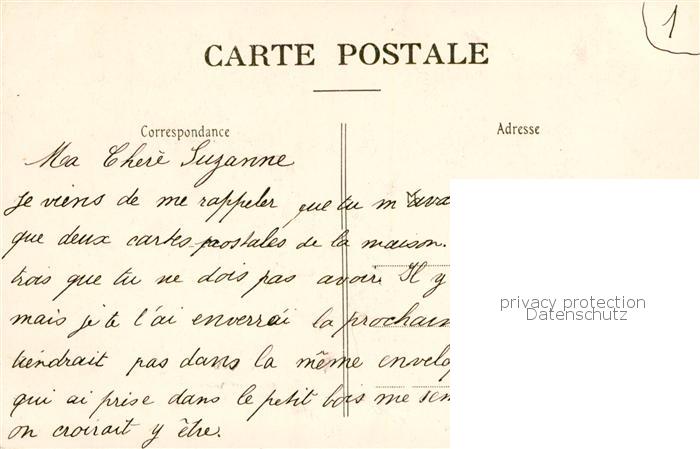 1
CARTE POSTALE
Correspondance
Adresse
Ma Cherè Suzanne
Je viens de me rappeler que tu m'ava
que deux cartes postales de la maison.
trois que tu ne dois pas avoir. Il y
mais je te l'ai enverrai la prochain
tiendrait pas dans la même envelo
qui ai prise dans le petit bois me sem
on croirait y être.
privacy protection
Datenschutz